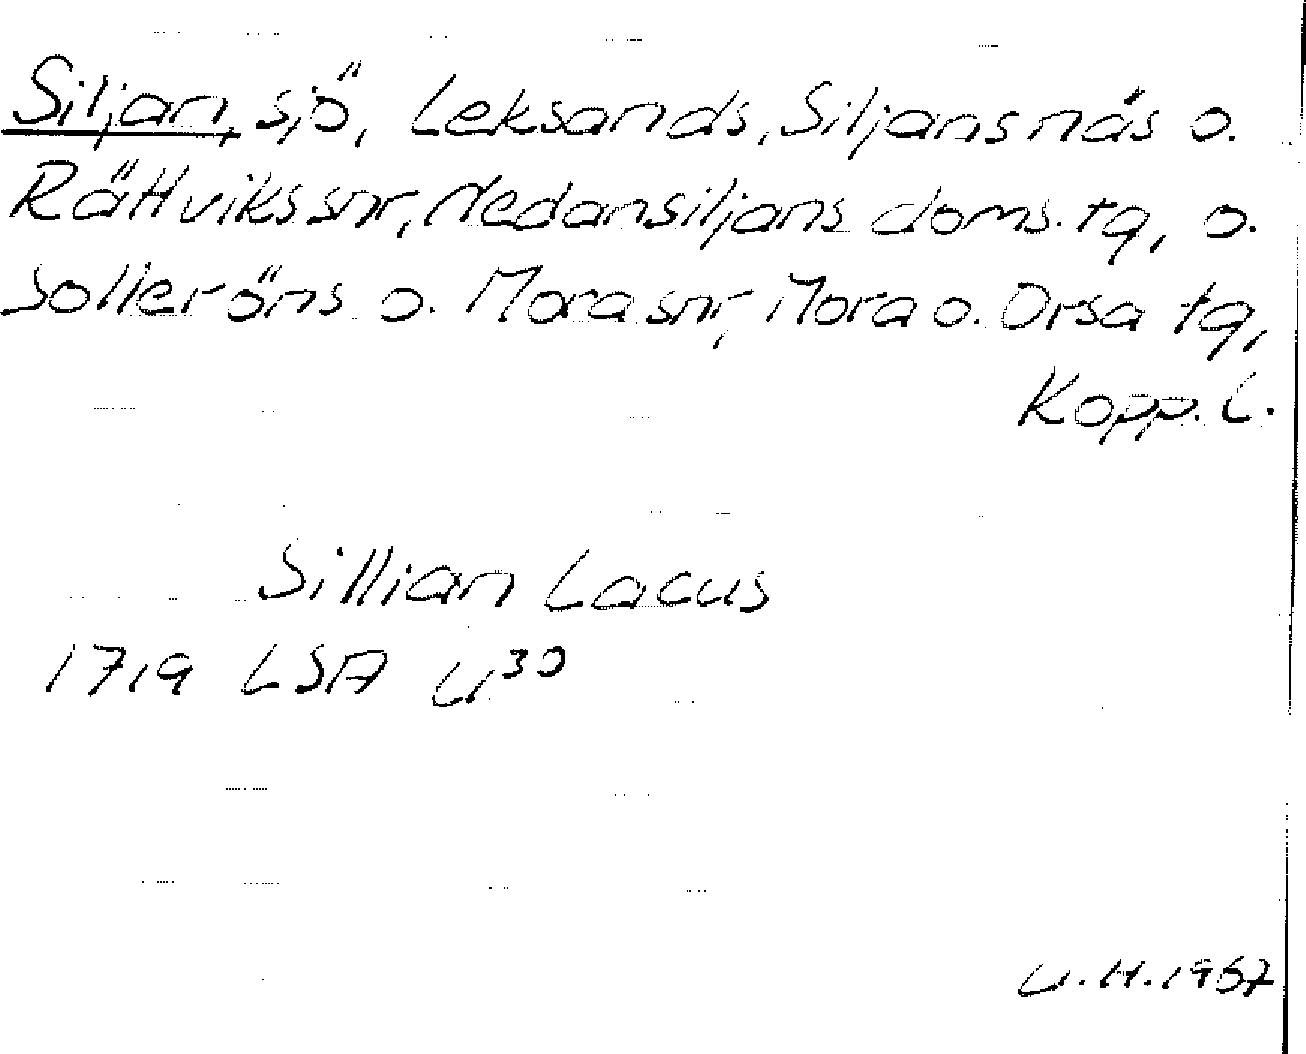 Siljan, sjö, Leksands, Siljansnäs o.
Rättviks snr, Nedansiljans doms. tg, o.
Solleröns o. Mora snr, Mora o. Orsa tg,
Kopp. l.
Sillian Lacus
1719 LSA U³⁰
U.H. 1967